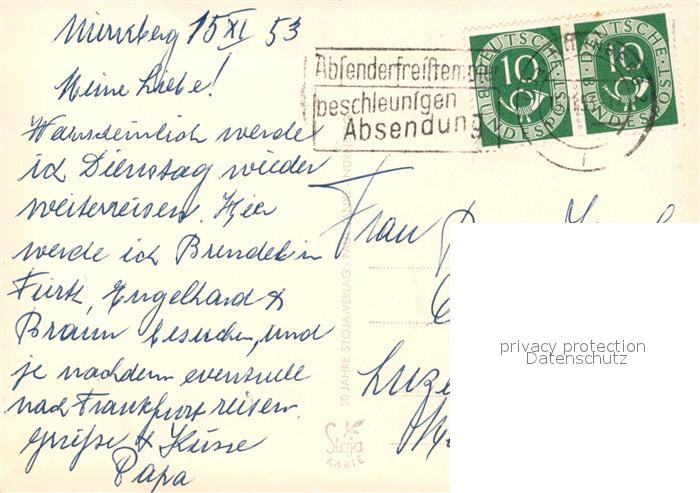 Nürnberg 15 XI 53
Meine Liebe!
Warscheinlich werde
ich Dienstag wieder
weiterreisen. Hier
werde ich Brendel in
Fürth, Engelhard &
Braun besuchen, und
je nachdem eventuell
nach Frankfurt reisen.
Grüße & Küsse
Papa
Absenderfreistempler
beschleunigen
Absendung
DEUTSCHE
10
BUNDESPOST
DEUTSCHE
10
BUNDESPOST
Frau
Luze
20 JAHRE STOJA-VERLAG
Stoja
KARTE
privacy protection
Datenschutz